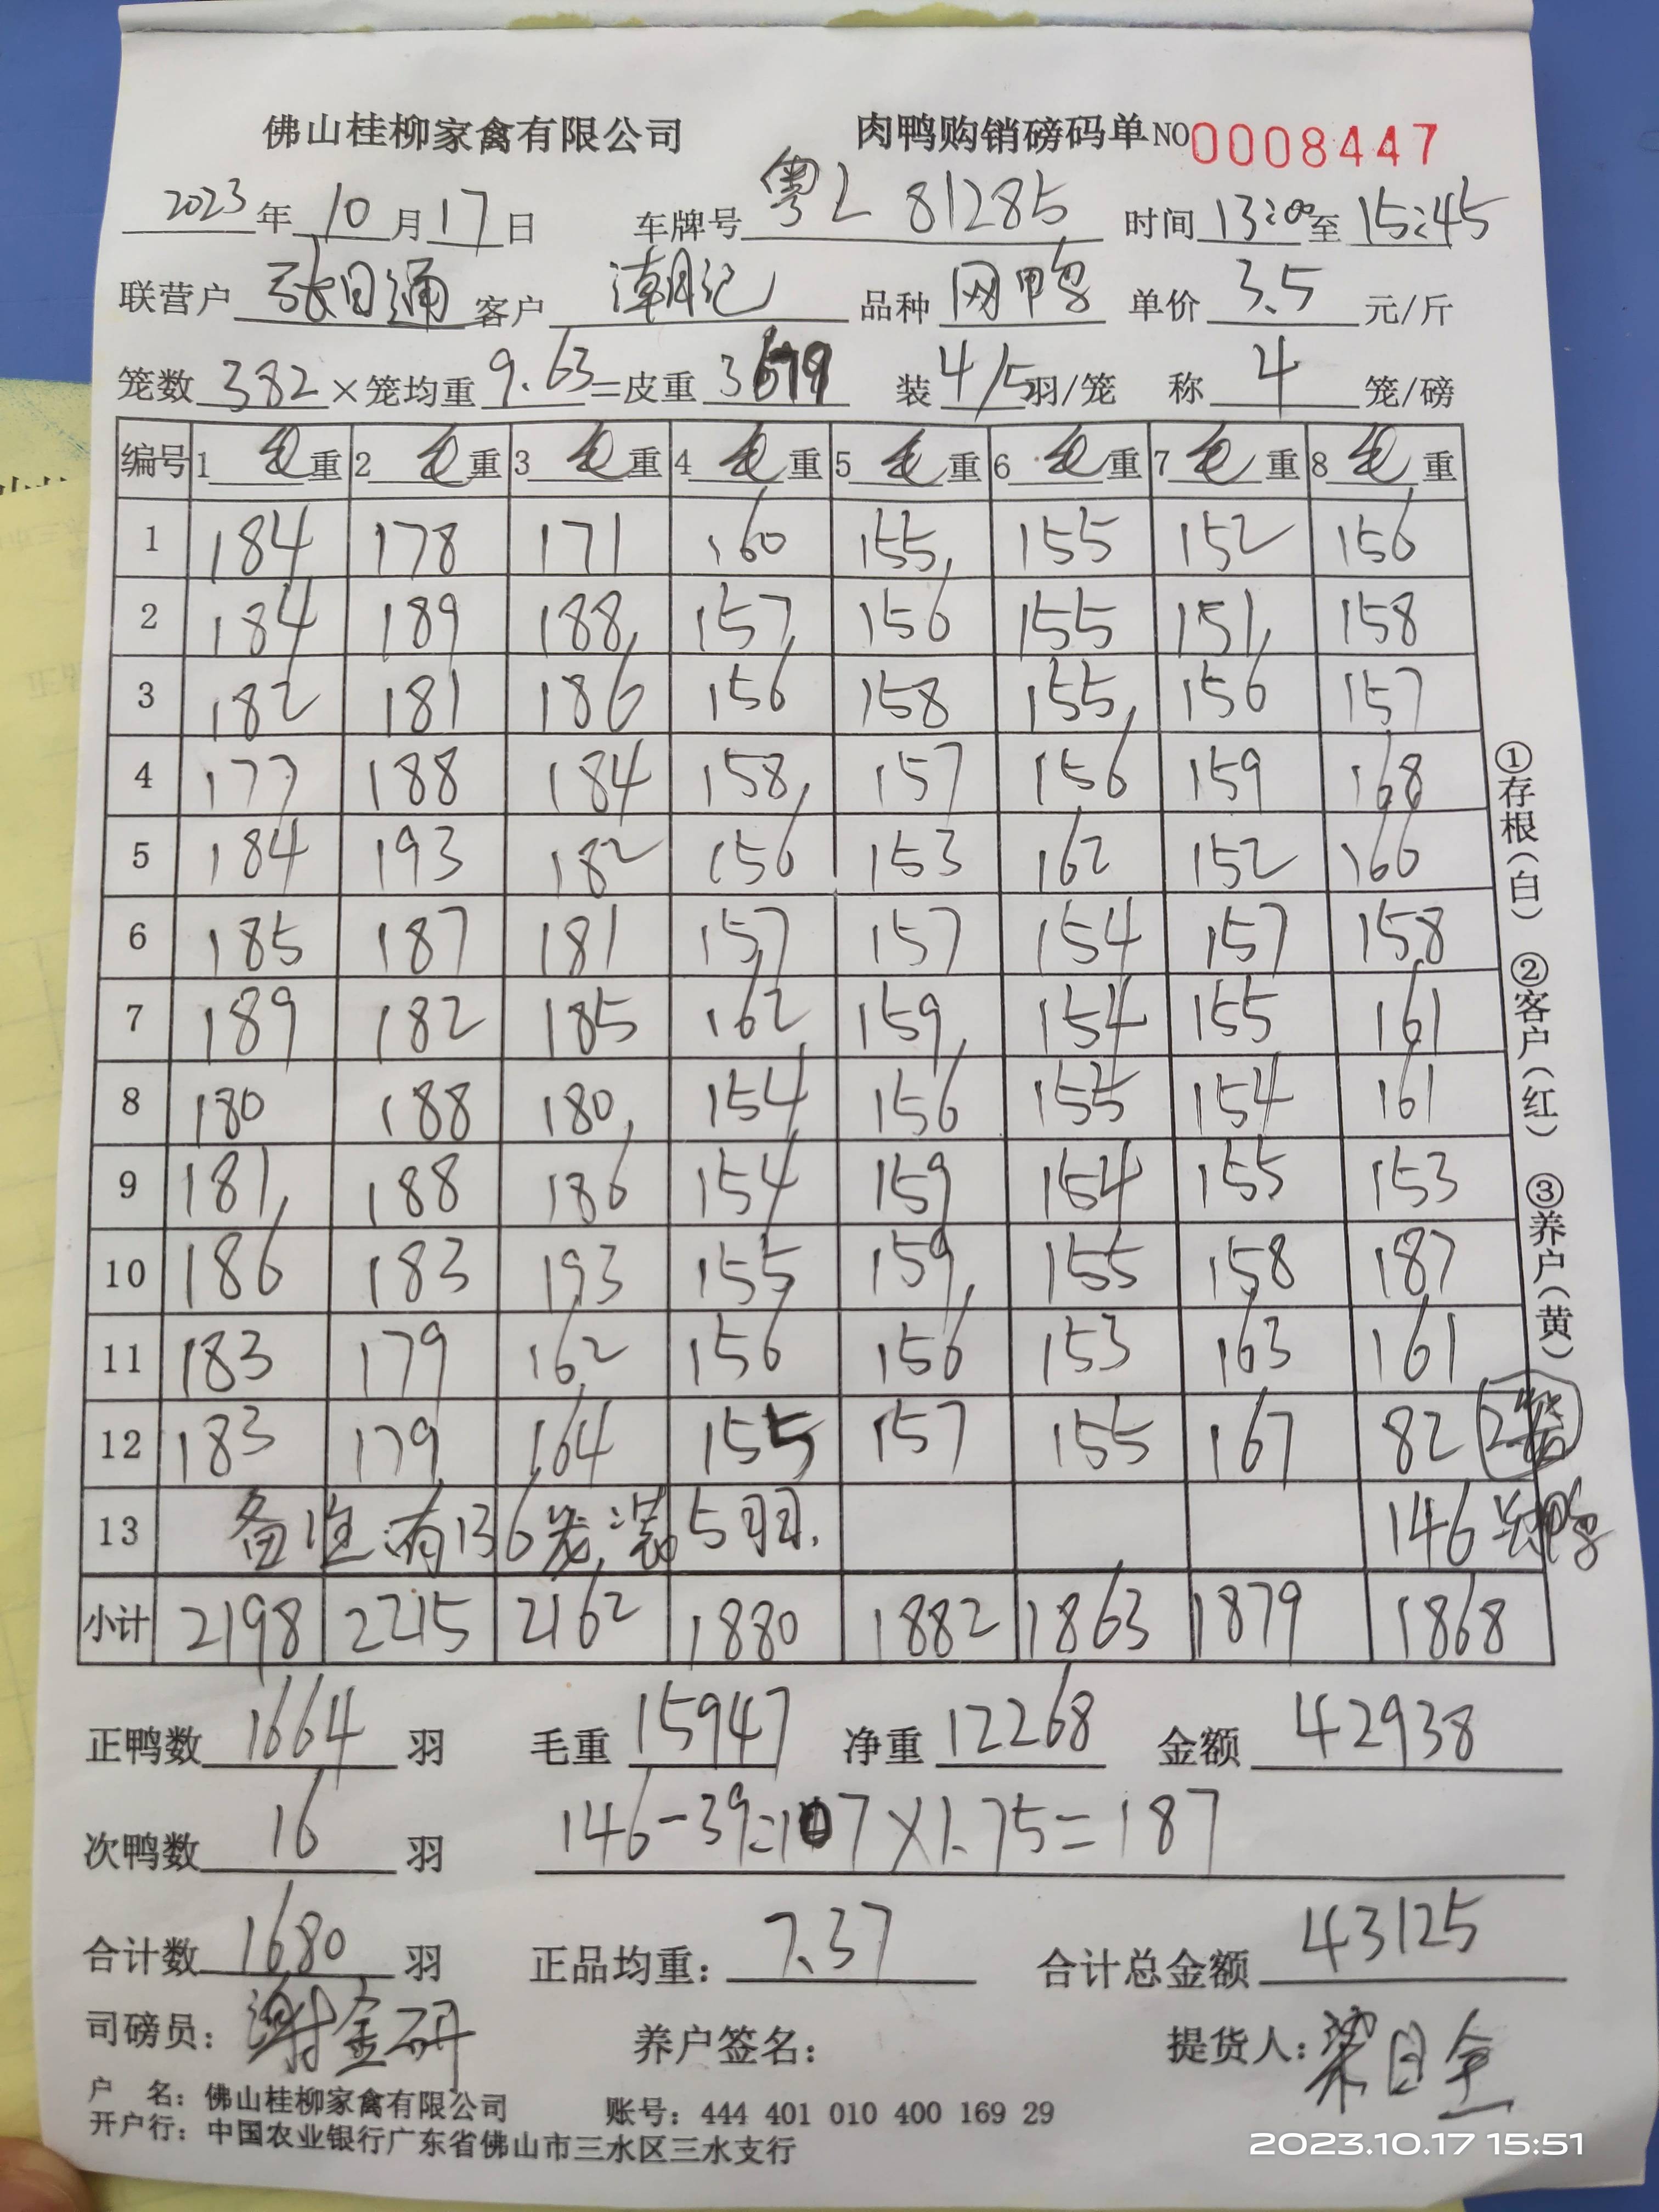 佛山桂柳家禽有限公司 肉鸭购销磅码单 NO 0008447
2023年10月17日 车牌号 粤L 81285 时间 13:00至15:45
联营户 张日通 客户 潮记 品种 网鸭 单价 3.5 元/斤
笼数 382 ×笼均重 9.63 =皮重 3679 装 4/5 羽/笼 称 4 笼/磅
编号 1 毛重 2 毛重 3 毛重 4 毛重 5 毛重 6 毛重 7 毛重 8 毛重
1 184 178 171 160 155 155 152 156
2 184 189 188 157 156 155 151 158
3 182 181 186 156 158 155 156 157
4 177 188 184 158 157 156 159 168
5 184 193 182 156 153 162 152 166
6 185 187 181 157 157 154 157 158
7 189 182 185 162 159 154 155 161
8 180 188 180 154 156 155 154 161
9 181 188 186 154 159 154 155 153
10 186 183 193 155 159 155 158 187
11 183 179 162 156 156 153 163 161
12 183 179 164 155 157 155 167 82 2笼
13 备注:有136笼装5羽. 146 鸭
小计 2198 2215 2162 1880 1882 1863 1879 1868
①存根(白) ②客户(红) ③养户(黄)
正鸭数 1664 羽 毛重 15947 净重 12268 金额 42938
次鸭数 16 羽 146-39=107×1.75=187
合计数 1680 羽 正品均重: 7.37 合计总金额 43125
司磅员: 谢金研 养户签名: 提货人: 梁日全
户 名: 佛山桂柳家禽有限公司 账号: 444 401 010 400 169 29
开户行: 中国农业银行广东省佛山市三水区三水支行
2023.10.17 15:51